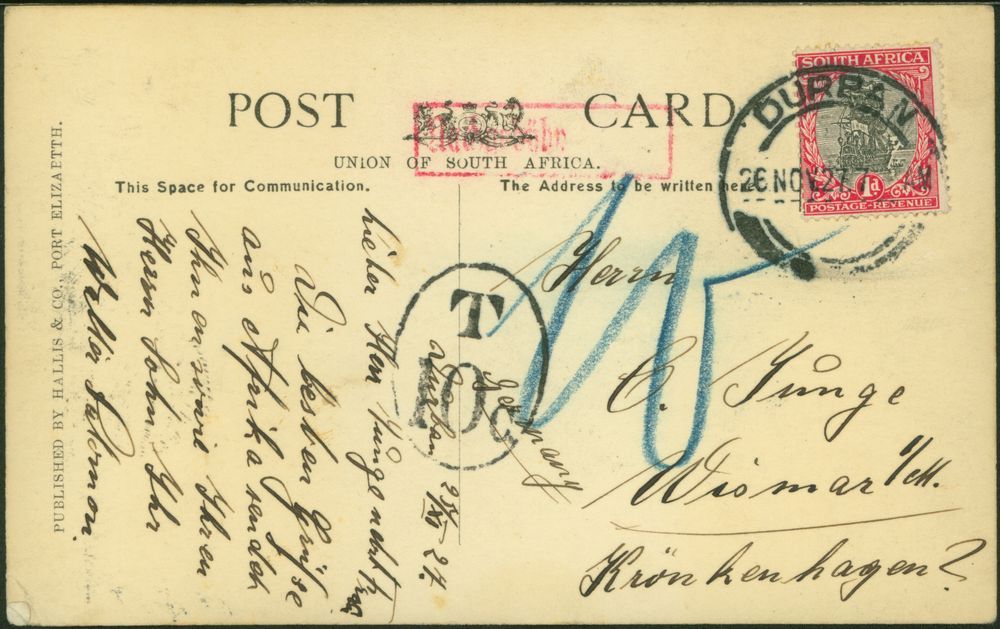 POST CARD.
UNION OF SOUTH AFRICA.
This Space for Communication.
The Address to be written here.
PUBLISHED BY HALLIS & CO., PORT ELIZABETH.
SOUTH AFRICA
1d
POSTAGE-REVENUE
DURBAN
26 NOV 27
T
10c
Nachgebühr
15
Durban
Germany
lieber Herr Junge nebst Frau
Die besten Grüsse
aus Afrika sendet
Ihnen sowie Ihren
Herrn Sohn Ihr
Herrn
C. Junge
Wismar i/M.
Krönkenhagen 2